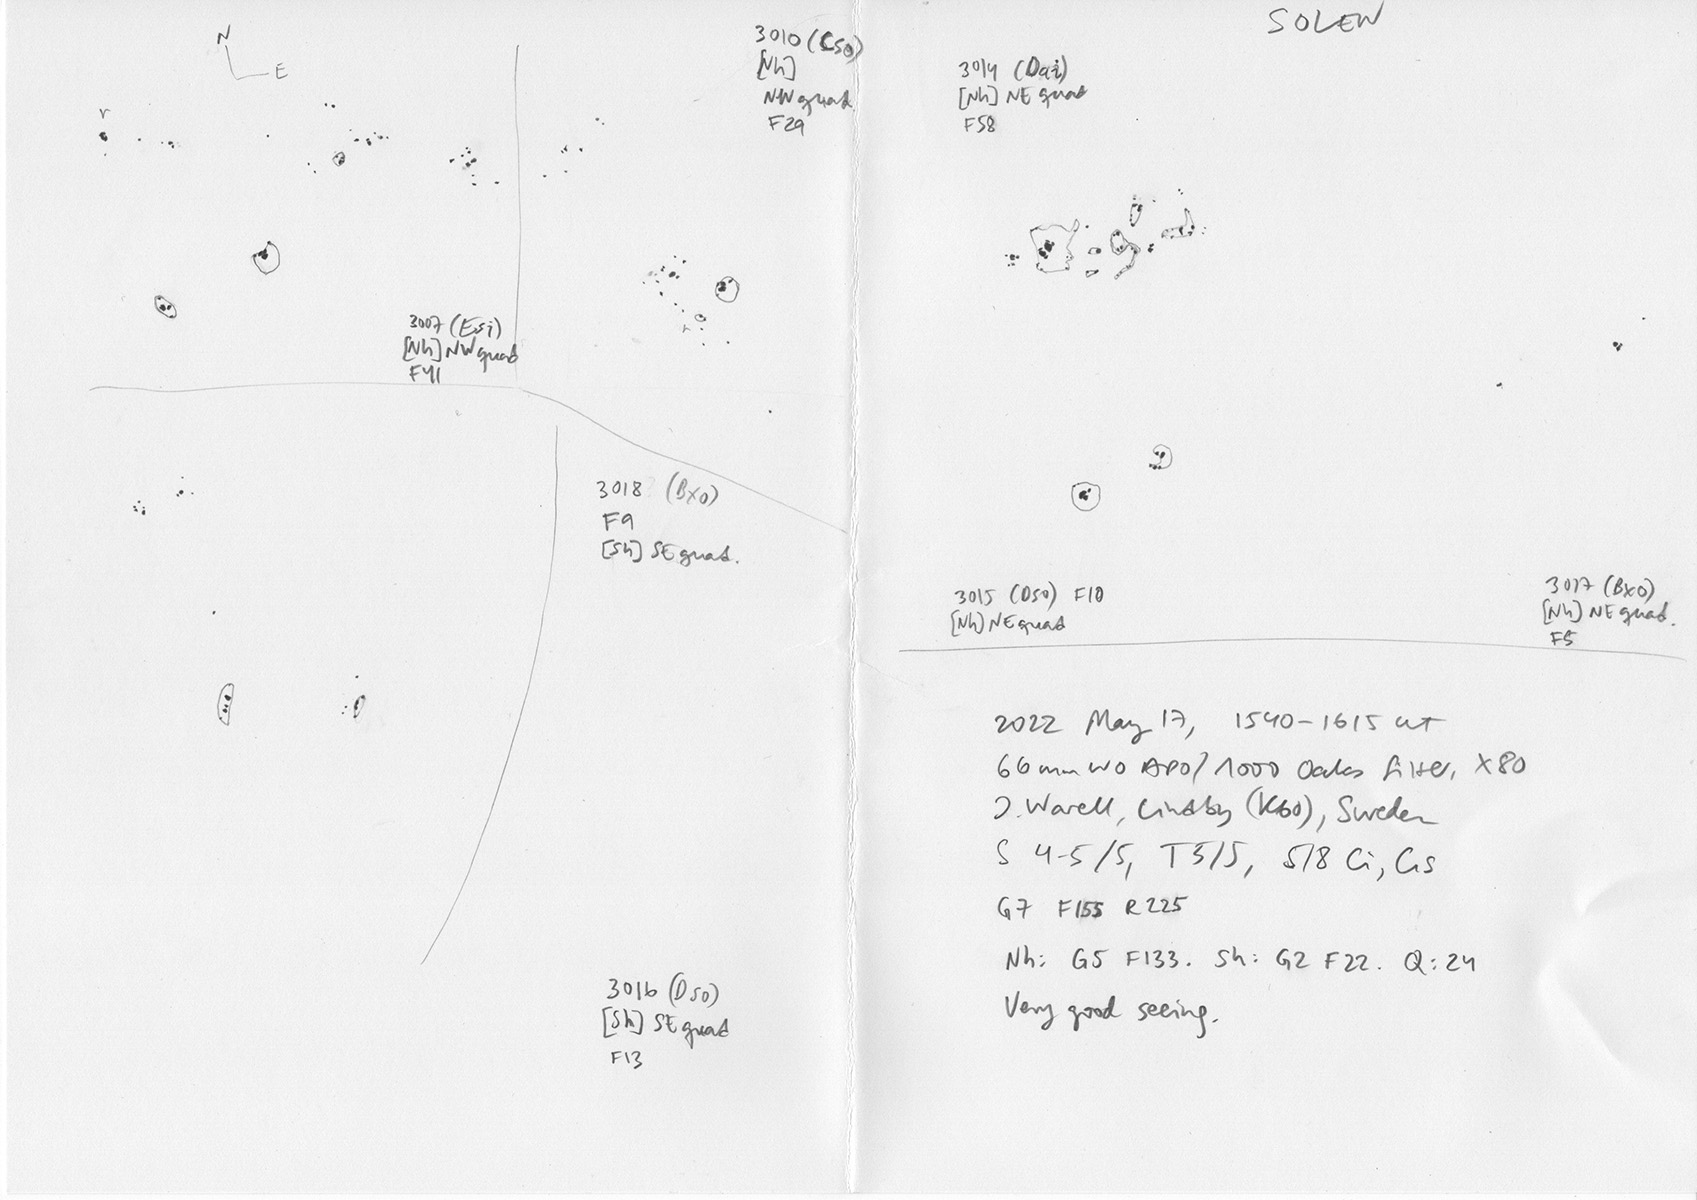 SOLEN
N
E
r
3010 (Cso)
[Nh]
NW quad
F29
3007 (Esi)
[Nh] NW quad
F41
r
3018 (Bxo)
F9
[Sh] SE quad.
3016 (Dso)
[Sh] SE quad
F13
3014 (Dai)
[Nh] NE quad
F58
3015 (Dso) F10
[Nh] NE quad
3017 (Bxo)
[Nh] NE quad.
F5
2022 May 17, 1540-1615 UT
66mm WO APO/1000 Oaks filter, x80
J. Warell, Lindby (K60), Sweden
S 4-5/5, T5/5, 5/8 Ci, Cs
G7 F155 R225
Nh: G5 F133. Sh: G2 F22. Q:24
Very good seeing.